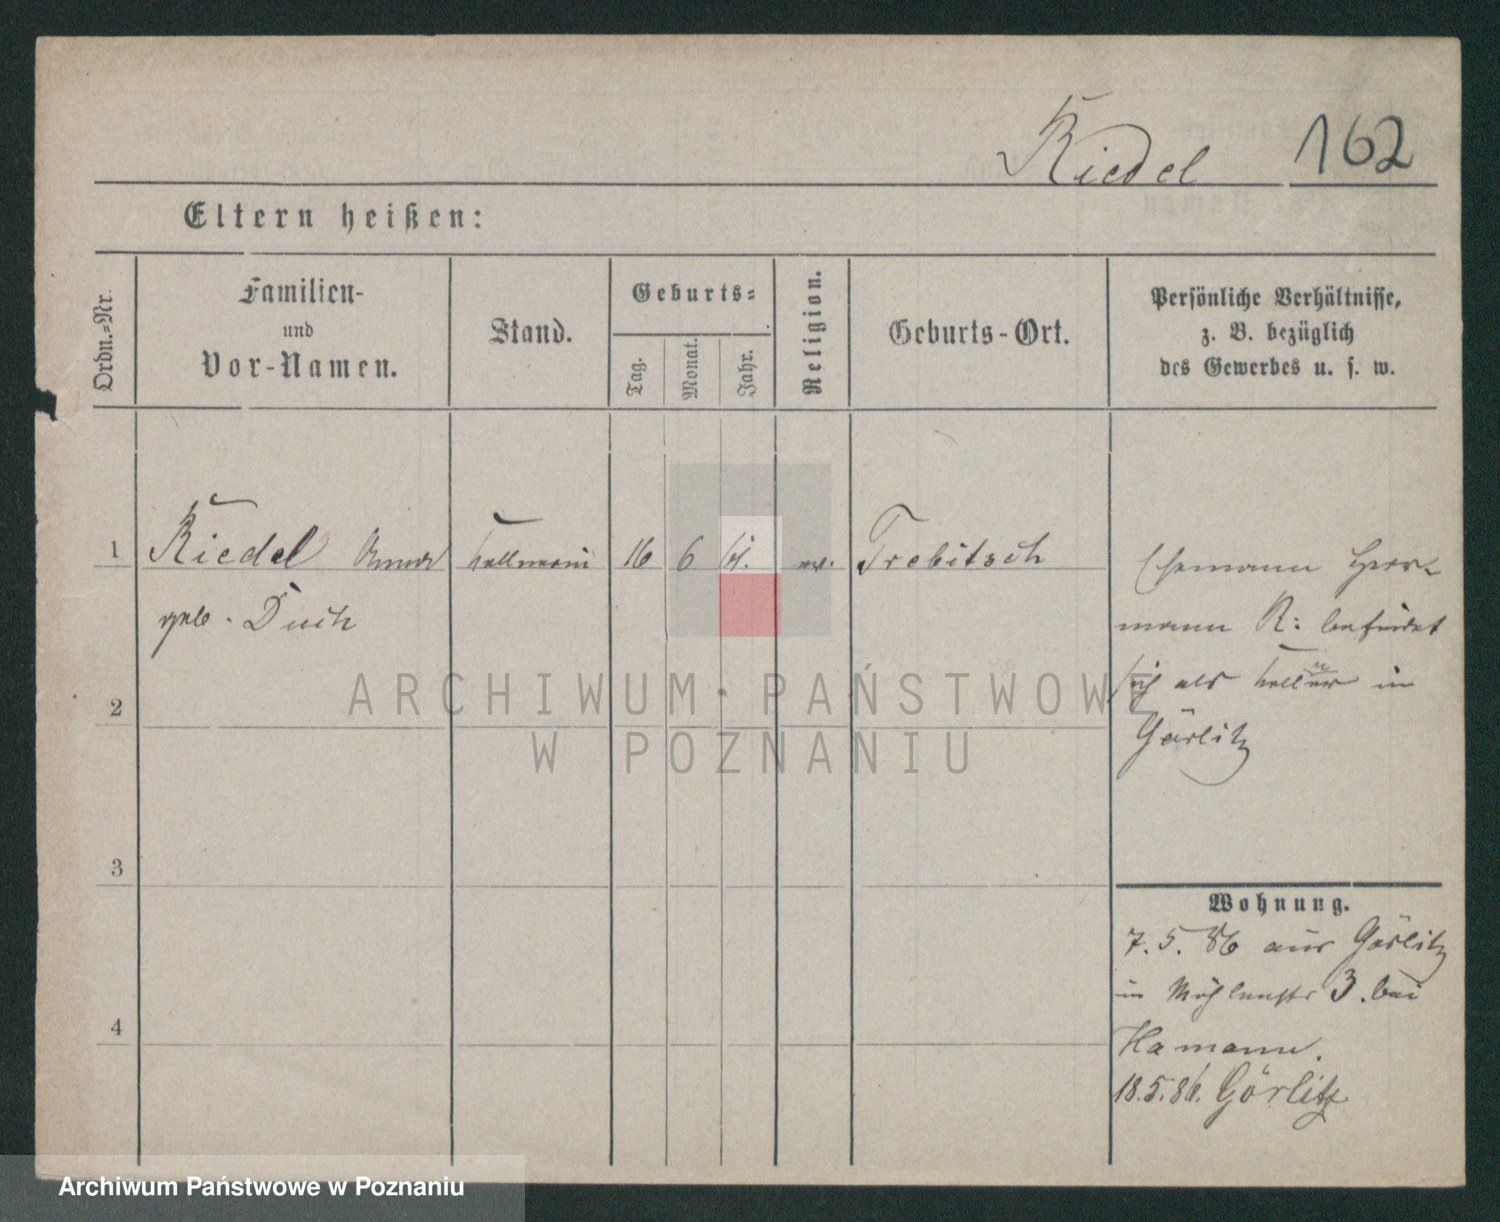 Riedel 162
Eltern heißen:
Ordn.-Nr.
Familien-
und
Vor-Namen.
Stand.
Geburts-
Tag.
Monat.
Jahr.
Religion.
Geburts-Ort.
Persönliche Verhältnisse,
z. B. bezüglich
des Gewerbes u. s. w.
1 Riedel Kellnerin 16 6 ev. Trebitsch
geb.
Ehemann Herr-
mann R: befindet
sich als Kellner in
Görlitz
2
3
4
Wohnung.
7. 5. 86 aus Görlitz
in Mühlenstr 3. bei
Hamann.
18. 5. 86. Görlitz
ARCHIWUM PAŃSTWOWE
W POZNANIU
Archiwum Państwowe w Poznaniu